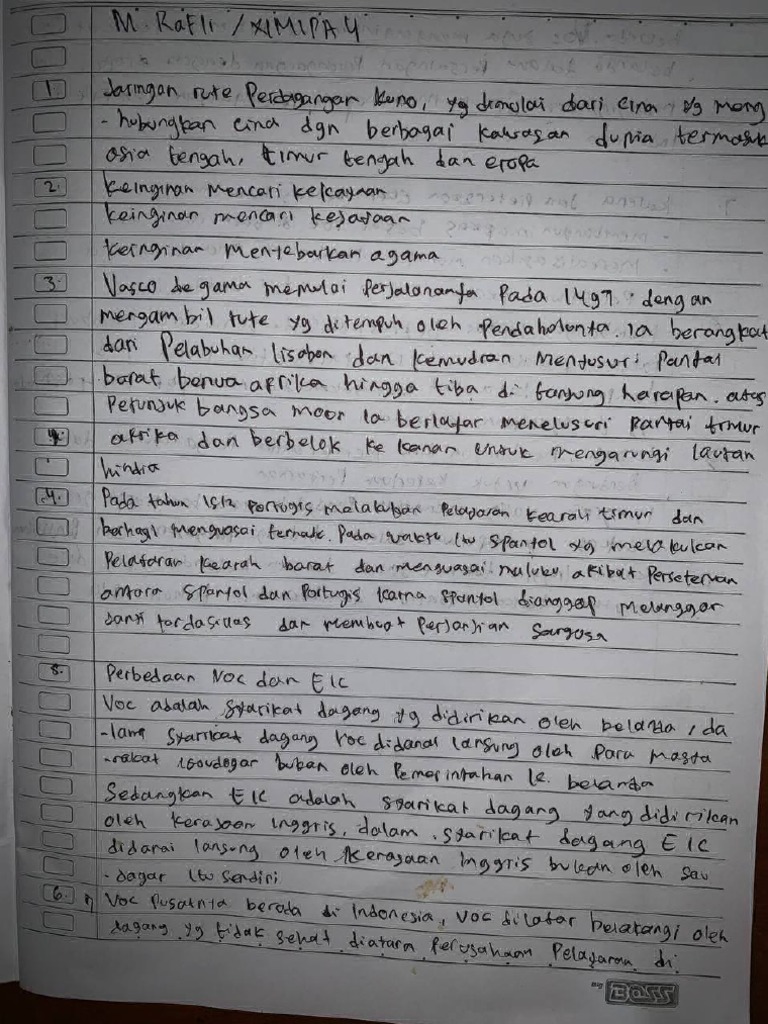 M. Rafli / XI MIPA 4
1. Jaringan rute Perdagangan kuno, yg dimulai dari cina yg meng
- hubungkan cina dgn berbagai kawasan dunia termasuk
asia tengah, timur tengah dan eropa
2. keinginan mencari kekayaan
keinginan mencari kejayaan
keinginan menyebarkan agama
3. Vasco de gama memulai Perjalananya Pada 1497. dengan
mengambil rute yg ditempuh oleh Pendahulunya. ia berangkat
dari Pelabuhan lisabon dan kemudian Menyusuri Pantai
barat benua afrika hingga tiba di tanjung harapan. atas
Petunjuk bangsa moor ia berlayar menelusuri Pantai timur
4. afrika dan berbelok ke kanan untuk mengarungi lautan
hindia
4. Pada tahun 1512 Portugis melakukan Pelayaran kearah timur dan
berhasil menguasai ternate. Pada waktu itu Spanyol yg melakukan
Pelayaran kearah barat dan menguasai maluku, akibat Perseteruan
antara Spanyol dan Portugis karna Spanyol dianggap Melanggar
janji tordasillas dan membuat Perjanjian Saragosa
5. Perbedaan Voc dan EIC
Voc adalah syarikat dagang yg didirikan oleh belanda, da
-lam syarikat dagang Voc didanai lansung oleh Para masya
-rakat / saudagar bukan oleh Pemerintahan k. belanda
Sedangkan EIC adalah syarikat dagang yang didirikan
oleh kerajaan inggris, dalam syarikat dagang EIC
didanai lansung oleh kerajaan inggris bukan oleh sau
- dagar itu sendiri
6. Voc Pusatnya berada di Indonesia, Voc dilatar belakangi oleh
dagang yg tidak sehat diatara Perusahaan Pelayaran di
by BOSS